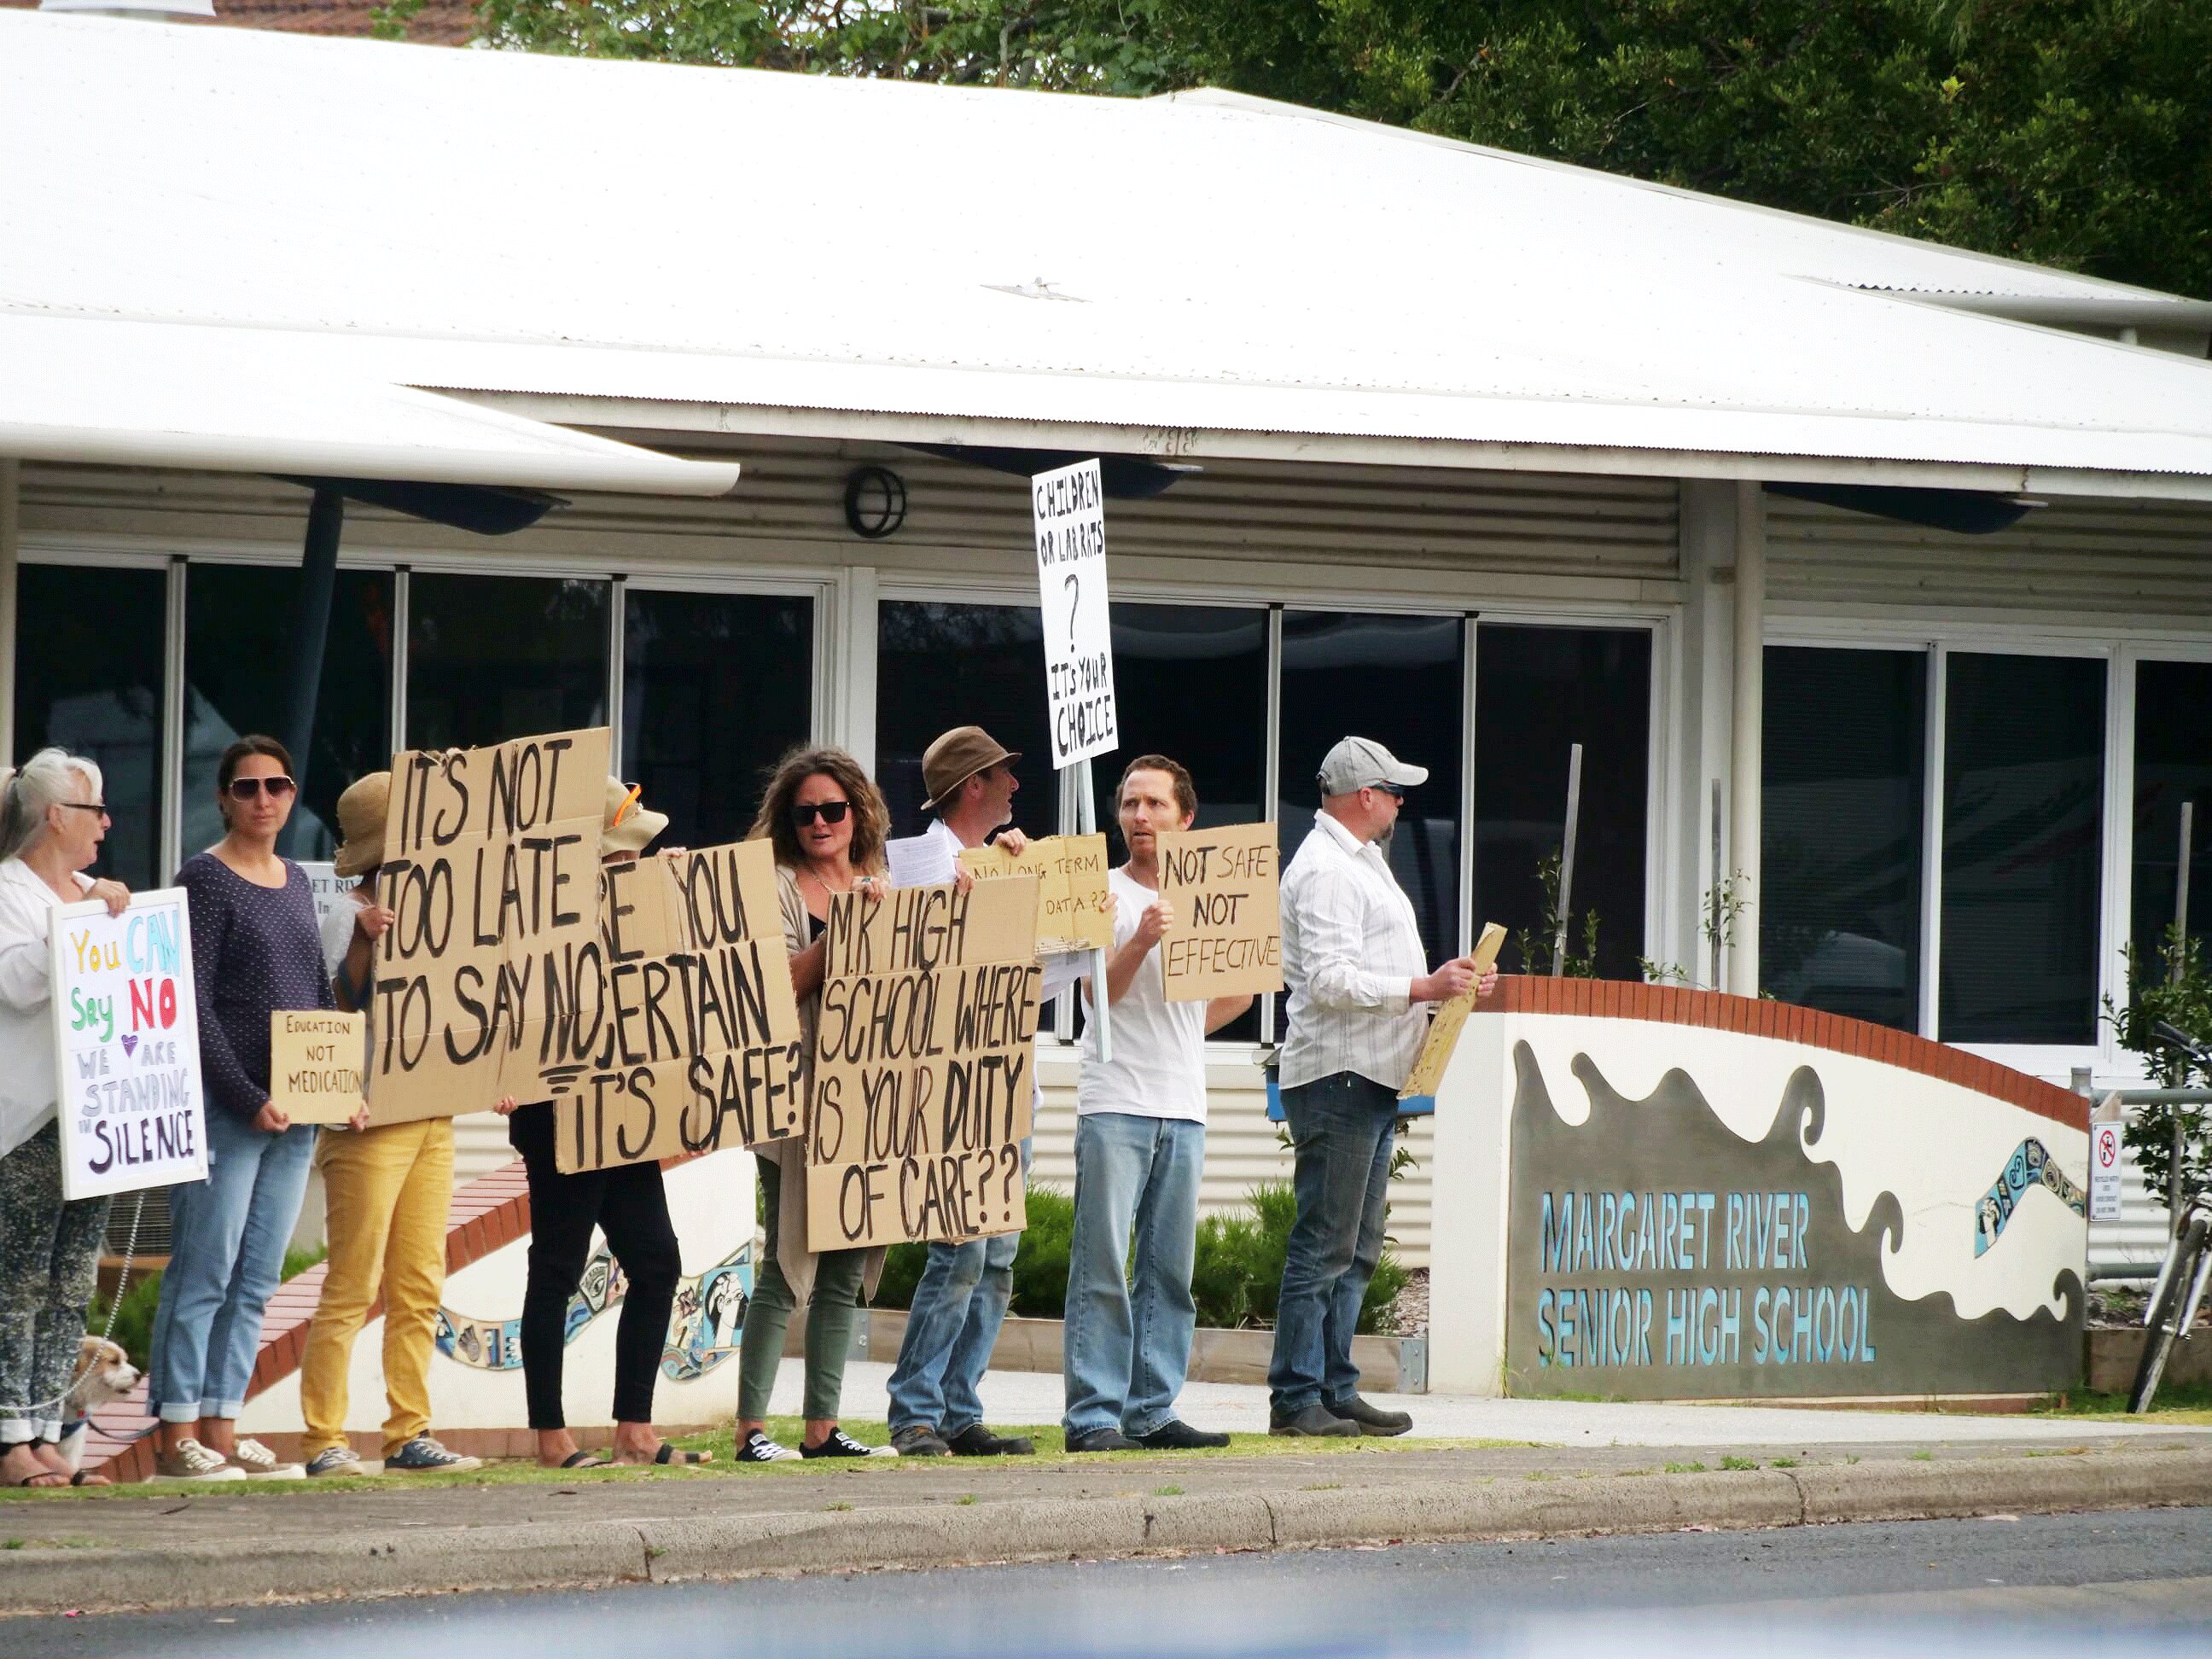 You CAN
Say NO
WE ARE
STANDING
IN SILENCE
EDUCATION
NOT
MEDICATION
ET RIV
IT'S NOT
TOO LATE
TO SAY NO
RE YOU
CERTAIN
IT'S SAFE?
M.R. HIGH
SCHOOL WHERE
IS YOUR DUTY
OF CARE??
NO LONG TERM
DATA??
CHILDREN
OR LAB RATS
?
IT'S YOUR
CHOICE
NOT SAFE
NOT
EFFECTIVE
MARGARET RIVER
SENIOR HIGH SCHOOL